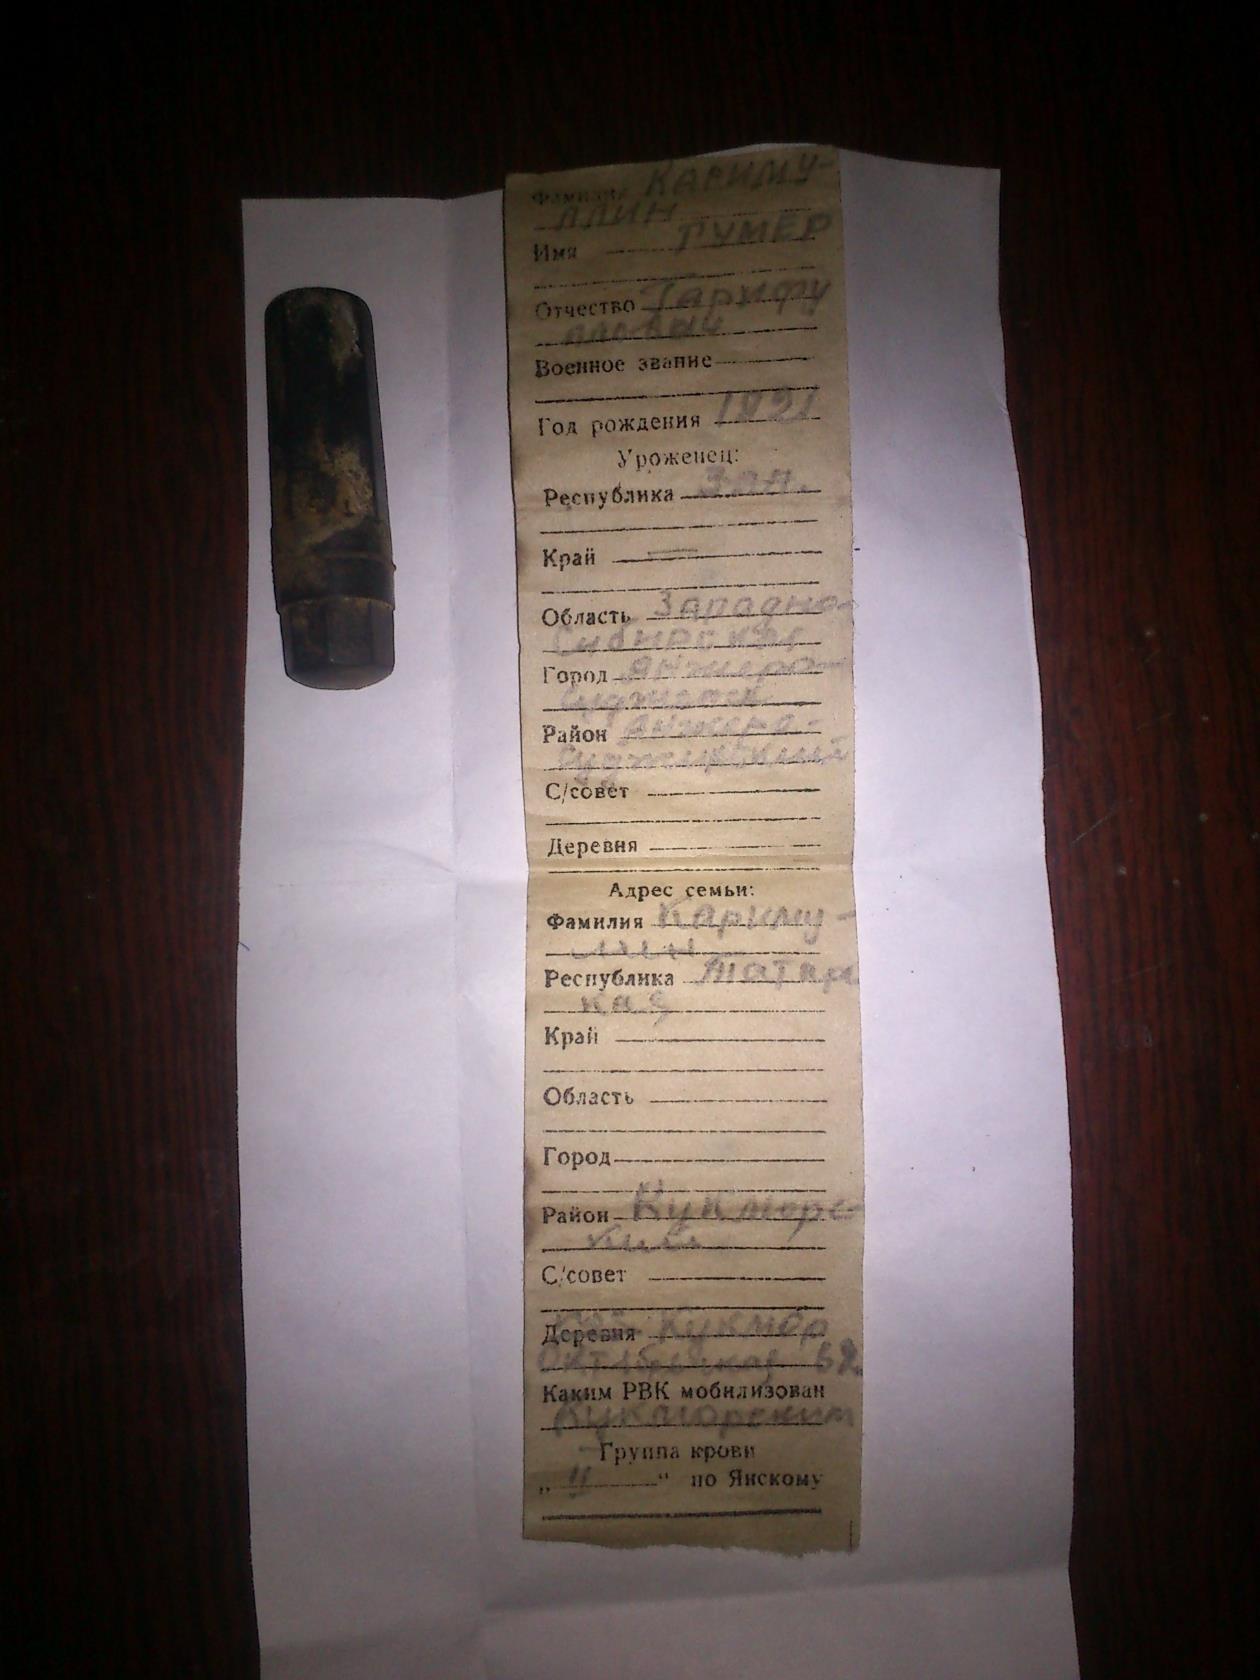 Фамилия Кариму-
ллин
Имя Гумер
Отчество Гарифу
ллович
Военное звание
Год рождения 1921
Уроженец:
Республика Зап.
Край
Область Западно-
Сибирская
Город Анжеро-
Судженск
Район Анжеро-
Судженский
С/совет
Деревня
Адрес семьи:
Фамилия Кариму-
лин
Республика Татар
кая
Край
Область
Город
Район Кукморс-
кий
С/совет
Деревня Кукмор
Октябрьская
Каким РВК мобилизован
Кукморским
Группа крови
„ II “ по Янскому